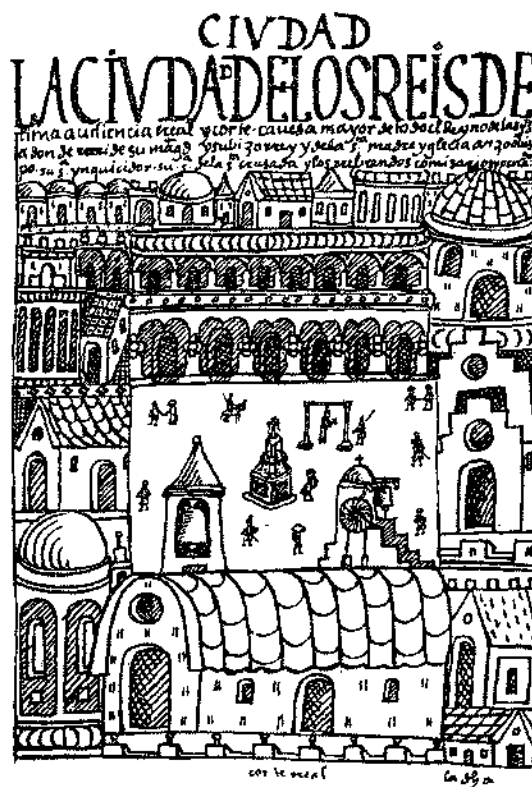 CIVDAD
LACIVDADELOSREISDE
lima audiencia rreal y corte cauesa mayor de todo el rreyno de las yns
adonde rreci de su magd y su bizorrey y de la sta madre yglecia arzobis
po su sa ynquicidor su sa de la sta crusada y los rreberendos comisarios y perla
corte rreal
la dha